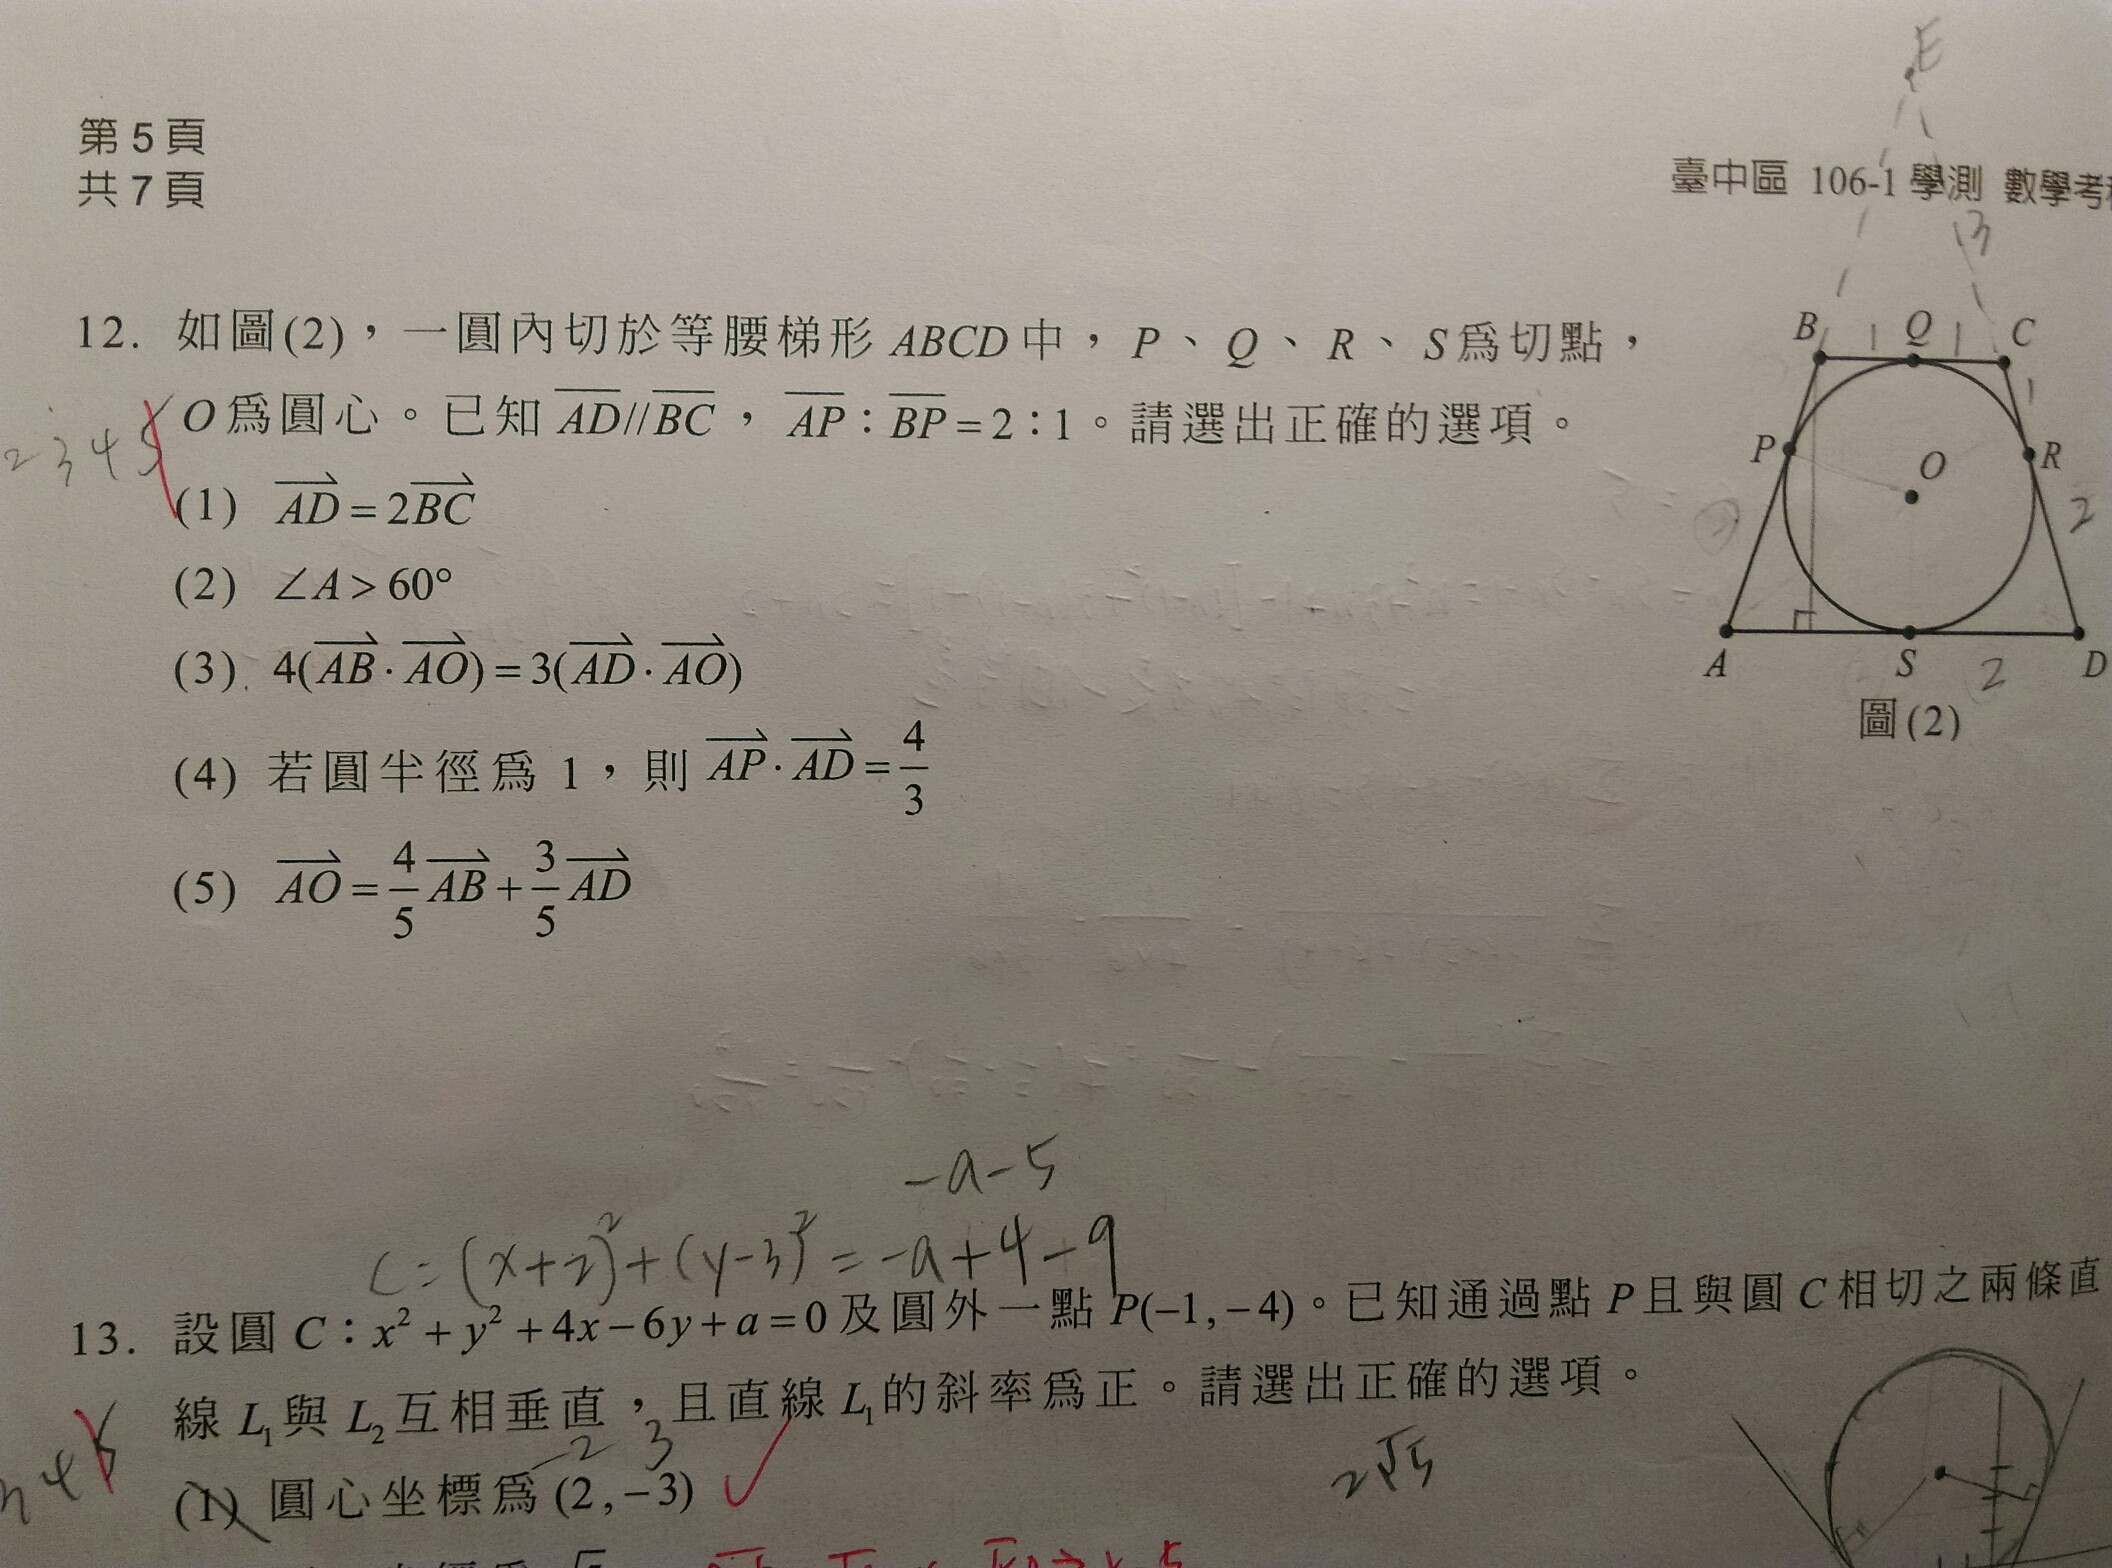 第 5 頁
共 7 頁
臺中區 106-1 學測 數學考
E
3
12. 如圖(2)，一圓內切於等腰梯形 ABCD 中，P、Q、R、S 為切點，
O 為圓心。已知 \overline{AD}//\overline{BC}，\overline{AP}：\overline{BP}=2：1。請選出正確的選項。
2345
(1) \overrightarrow{AD}=2\overrightarrow{BC}
(2) ∠A>60°
(3) 4(\overrightarrow{AB}·\overrightarrow{AO})=3(\overrightarrow{AD}·\overrightarrow{AO})
(4) 若圓半徑為 1，則 \overrightarrow{AP}·\overrightarrow{AD}=4/3
(5) \overrightarrow{AO}=4/5\overrightarrow{AB}+3/5\overrightarrow{AD}
B 1 Q 1 C
1
P O R
2
A S 2 D
圖(2)
-a-5
C=(x+2)²+(y-3)²=-a+4-9
13. 設圓 C：x²+y²+4x-6y+a=0 及圓外一點 P(-1,-4)。已知通過點 P 且與圓 C 相切之兩條直
線 L₁ 與 L₂ 互相垂直，且直線 L₁ 的斜率為正。請選出正確的選項。
-2 3
2√5
45
(1) 圓心坐標為 (2,-3)